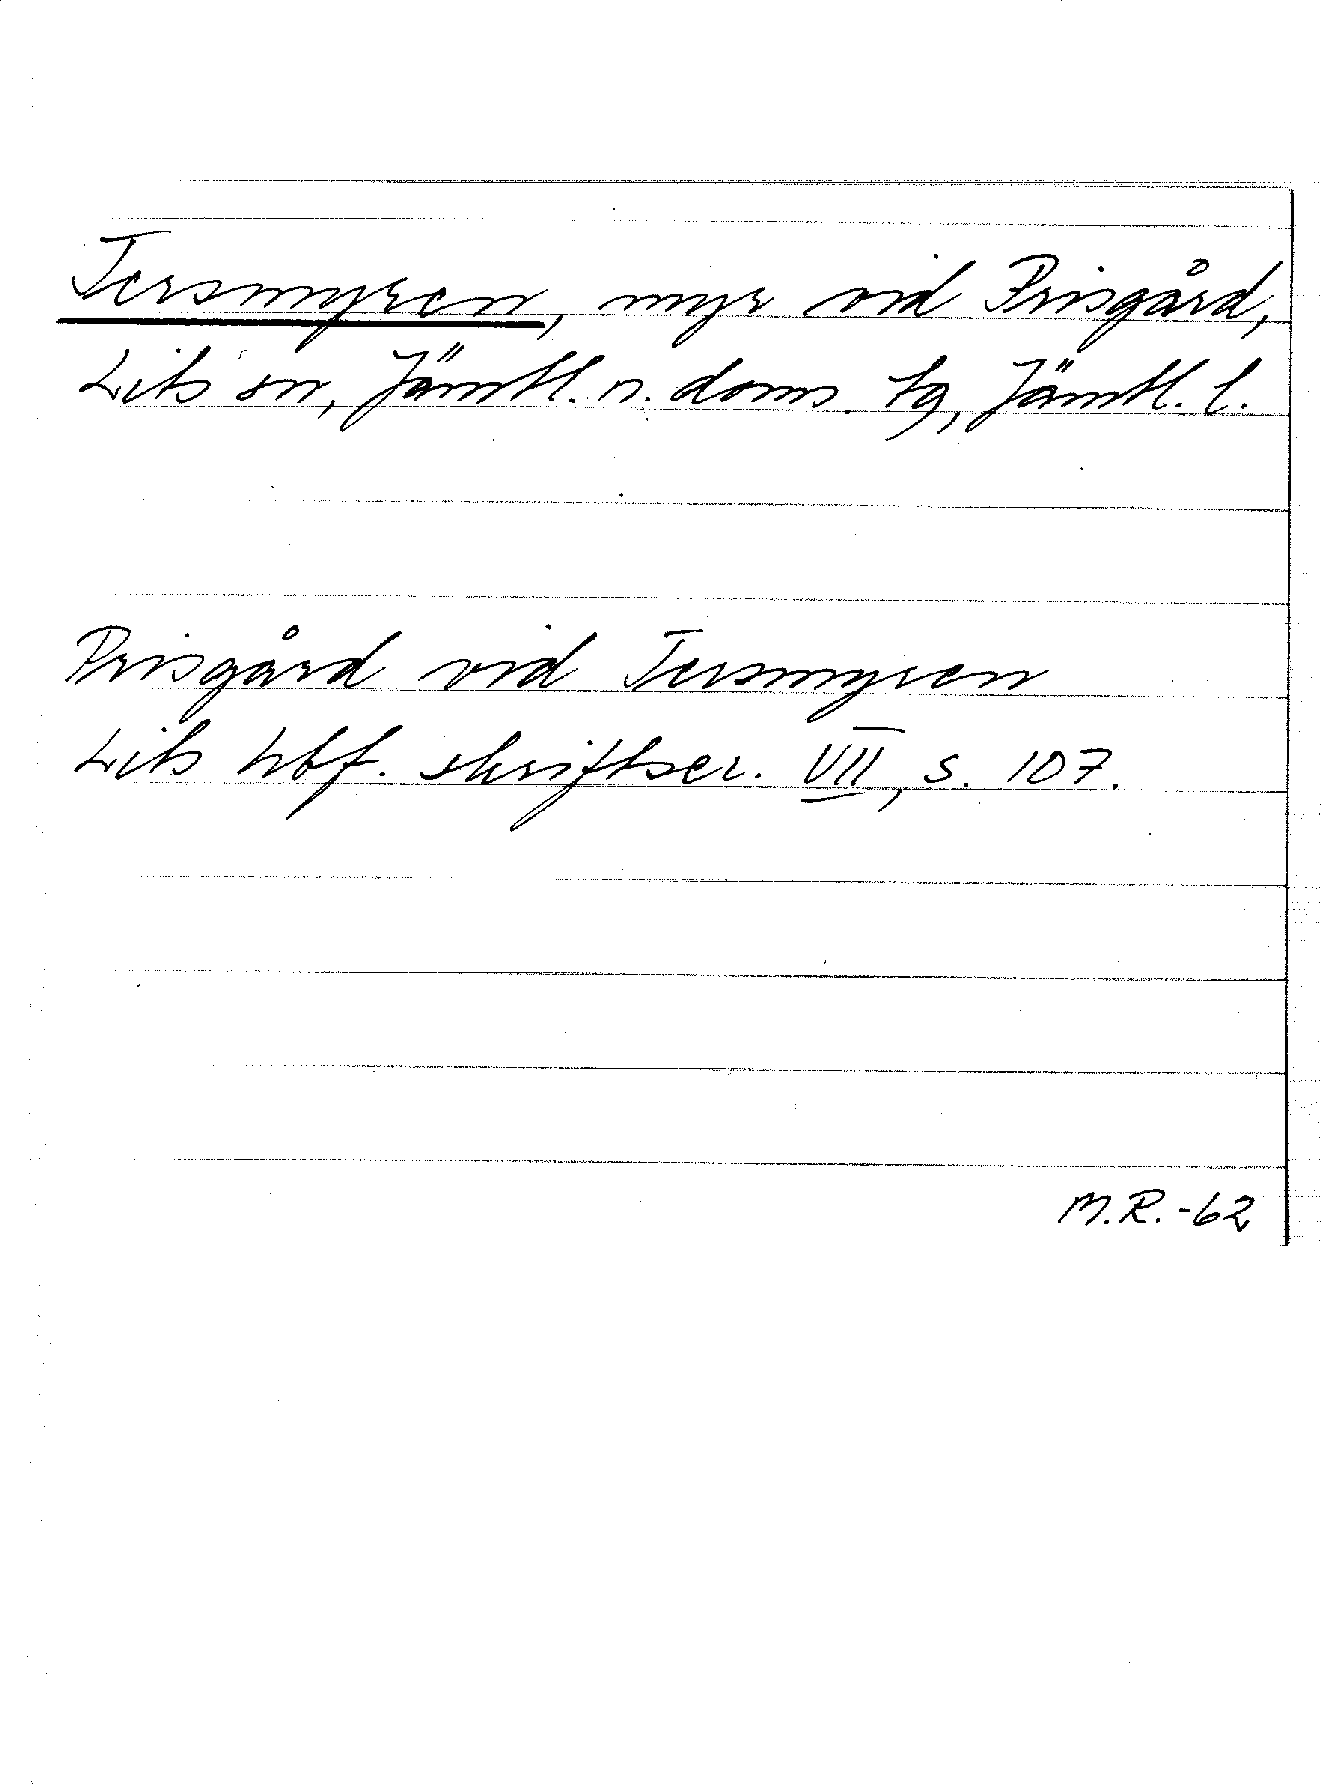 Tersmyren, myr vid Prisgård,
Lits sn, Jämtl. n. doms. tg, Jämtl. l.
Prisgård vid Tersmyren
Lits hbf. skriftser. VII, s. 107.
M.R.-62